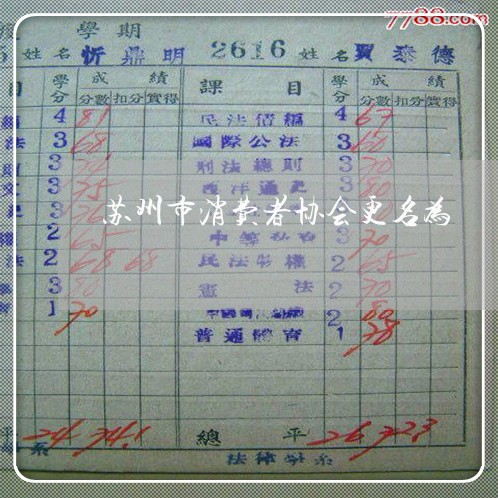 7788.com
學期
姓名 忻鼎明 2616 姓名 賈泰德
目 學分 成績 課目 學分 成績
分數 扣分 實得 分數 扣分 實得
4 81 民法債編 4 67
法 3 68 國際公法 3 60
3 刑法總則 3 70
3 75 西洋通史 3 80
苏州市消费者协会更名為
2 65 3 70
法 2 68 68 民法物權 2 65
3 80 憲法 2 70
1 70 2 80
普通體育 1 78
平 24 74.1 總平 26 72.3
系 法律學系